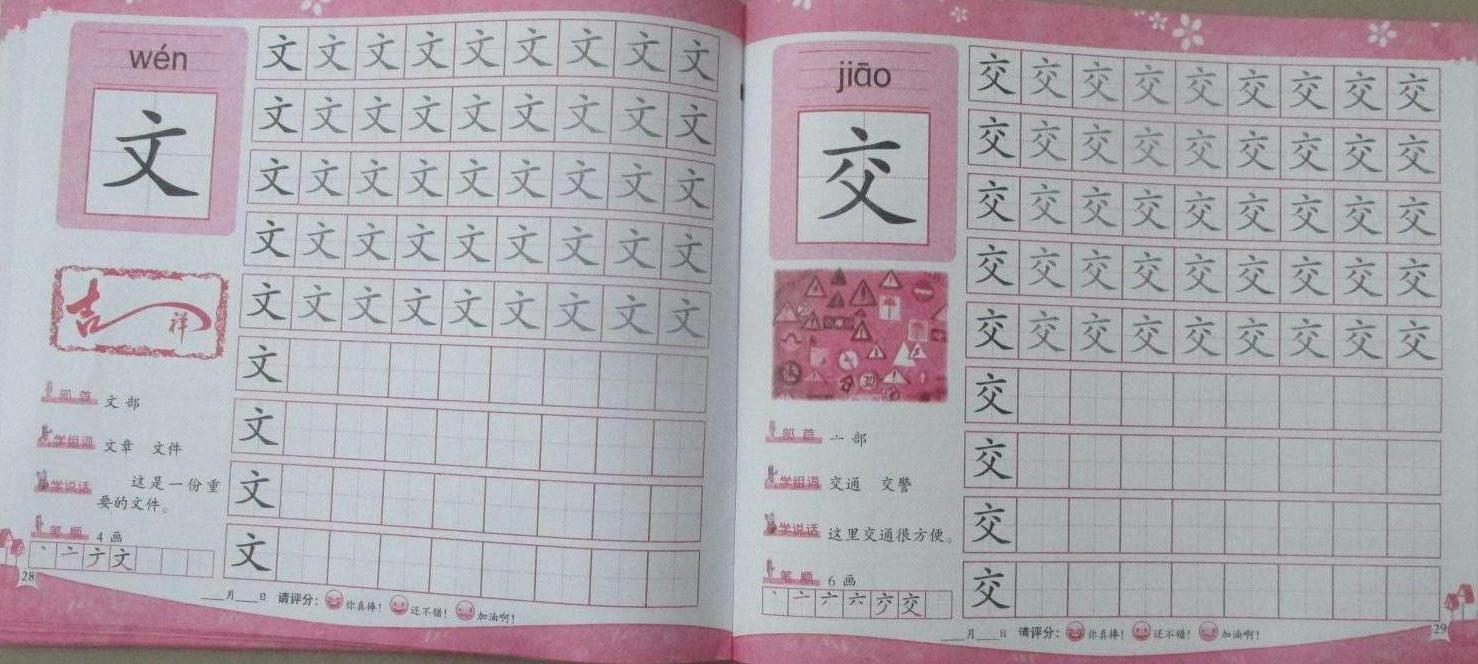 wén
文
文文文文文文文文文
文文文文文文文文文
文文文文文文文文文
文文文文文文文文文
文文文文文文文文文
文
文
文
文
吉祥
部首 文部
学组词 文章 文件
学说话 这是一份重
要的文件。
笔顺 4画
丶 亠 ナ 文
28
月 日 请评分: 你真棒! 还不错! 加油啊!
jiāo
交
交交交交交交交交交
交交交交交交交交交
交交交交交交交交交
交交交交交交交交交
交交交交交交交交交
交
交
交
交
部首 亠部
学组词 交通 交警
学说话 这里交通很方便。
笔顺 6画
丶 亠 六 交
月 日 请评分: 你真棒! 还不错! 加油啊!
29